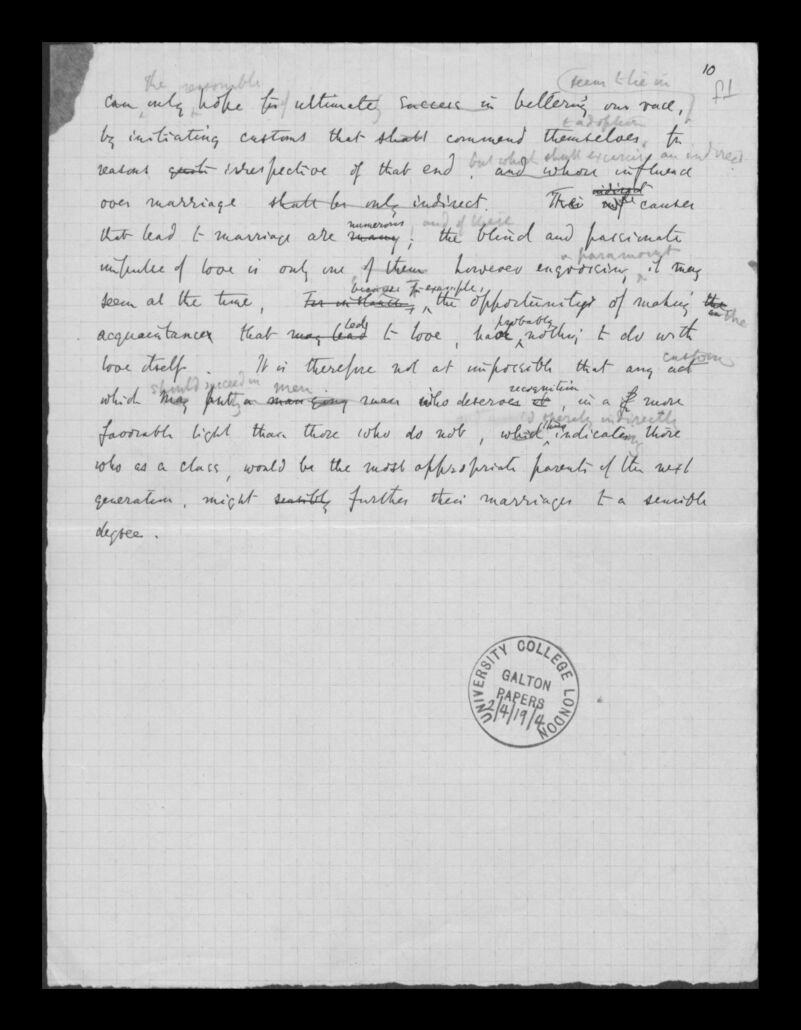 10
the reasonable (seem to lie in
can only hope for ultimate success in bettering our race,
to adoption
by initiating customs that shall commend themselves, for
but which shall exercise an indirect
reasons quite irrespective of that end, and whose influence
over marriage shall be only indirect. The causes
numerous and of these
that lead to marriage are many; the blind and passionate
a paramount
impulse of love is only one of them however engrossing it may
because for example,
seem at the time, For instance, the opportunities of making the
the
acquaintances that may lead to love, have nothing to do with
leads probably
love itself. It is therefore not at impossible that any act
custom
should succeed in men
which may put a man who deserves it, in a more
recognition
indirectly
favorable light than those who do not, indicating those
who as a class, would be the most appropriate parents of the next
generation, might sensibly further their marriages to a sensible
degree.
UNIVERSITY COLLEGE LONDON
GALTON
PAPERS
2/4/19/4